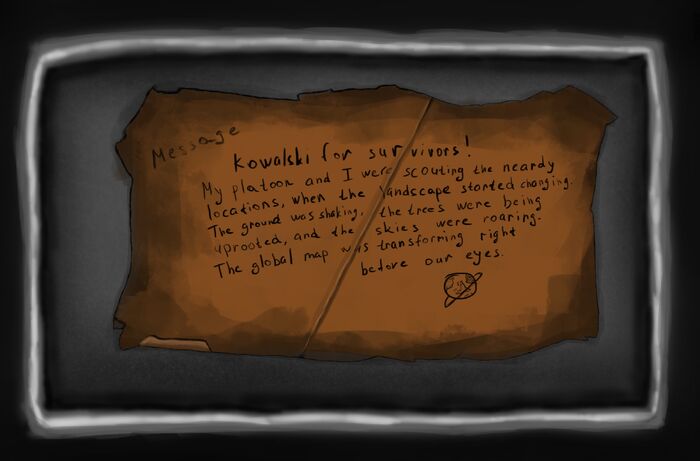 Message
Kowalski for survivors!
My platoon and I were scouting the neardy
locations, when the landscape started changing.
The ground was shaking, the trees were being
uprooted, and the skies were roaring.
The global map was transforming right
before our eyes.